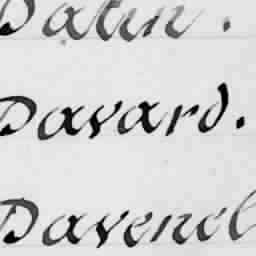 Datin.
Davard.
Davenel